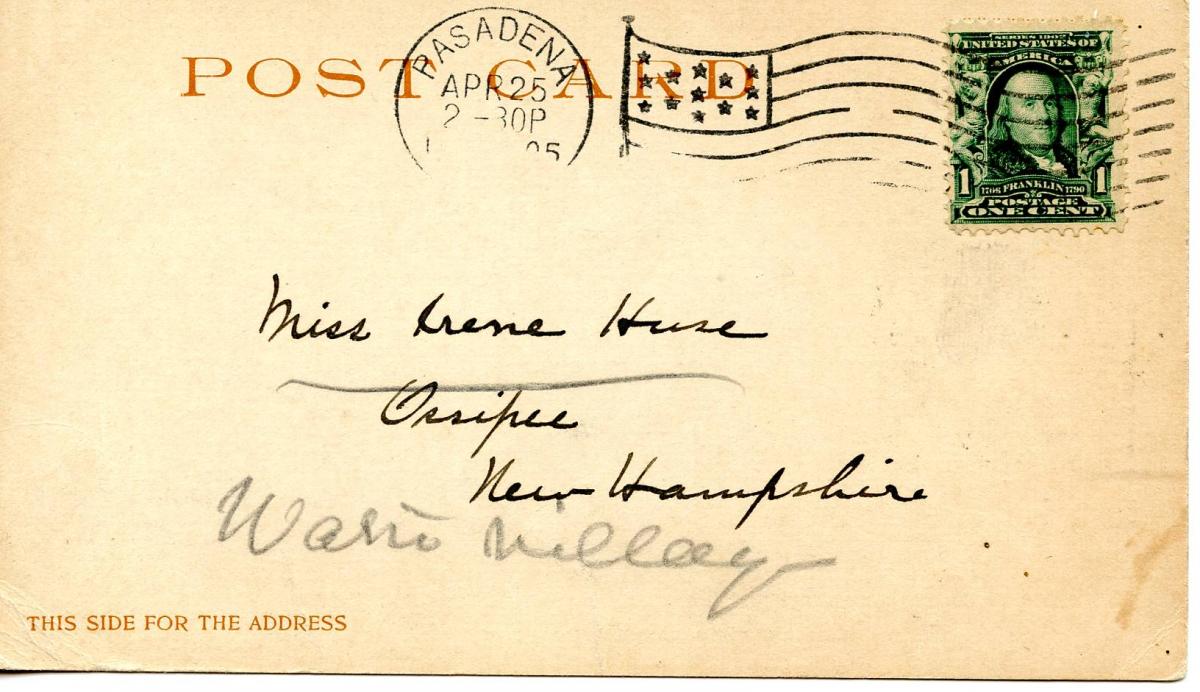 POST CARD
PASADENA
APR 25
2-30P
05
SERIES 1902
UNITED STATES OF
AMERICA
1 1
1706 FRANKLIN 1790
POSTAGE
ONE CENT
Miss Irene Huse
Ossipee
New Hampshire
Village
THIS SIDE FOR THE ADDRESS